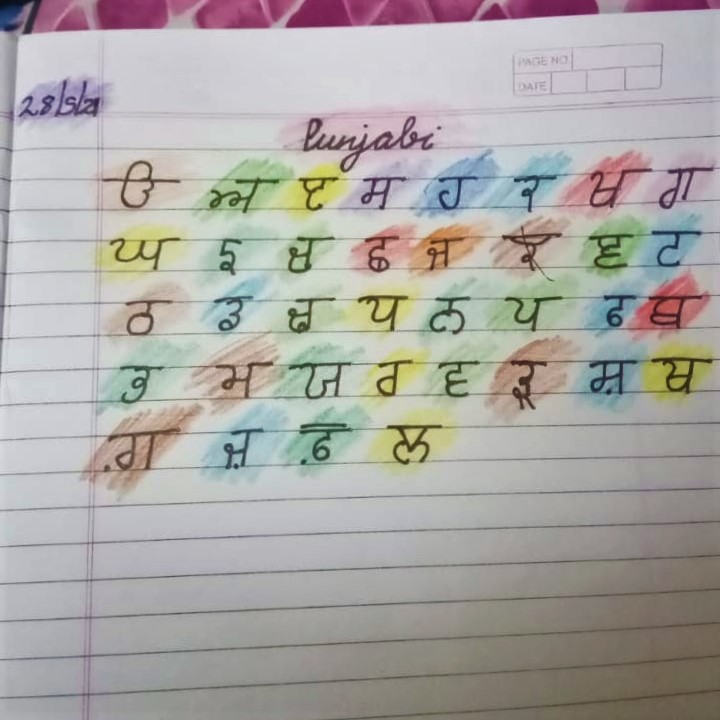 PAGE NO
DATE
28/5/21
Punjabi
ੳ ਅ ੲ ਸ ਹ ਕ ਖ ਗ
ਘ ਙ ਚ ਛ ਜ ਞ ਟ
ਠ ਡ ਢ ਧ ਲ ਪ ਫ ਬ
ਭ ਮ ਯ ਰ ਵ ੜ ਸ਼ ਖ
.ਗ ਜ਼ ਫ਼ ਲ